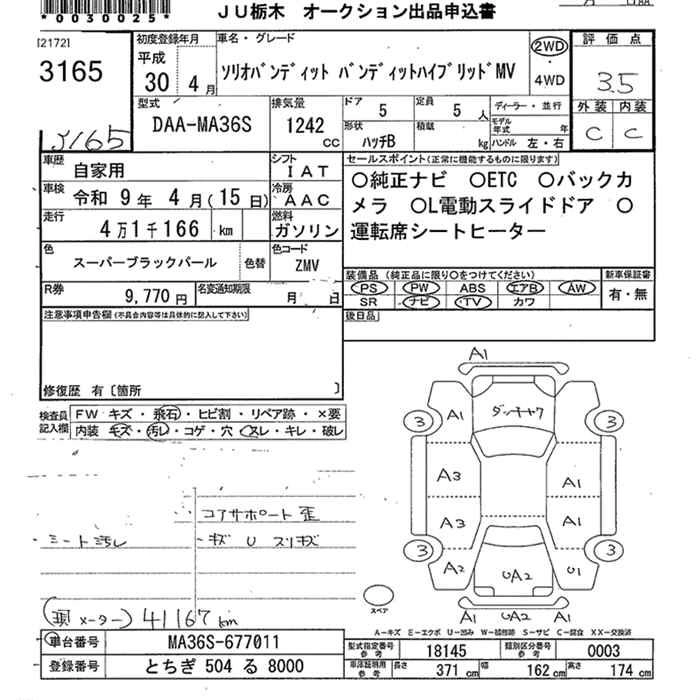 *0030025*
JU栃木 オークション出品申込書
[21721]
3165
初度登録年月
平成
30年 4月
車名・グレード
ソリオバンディット バンディットハイブリッドMV
2WD
・
4WD
評価点
3.5
外装 内装
C C
3165
型式
DAA-MA36S
排気量
1242
CC
ドア
5
定員
5 人
形状
ハッチB
積載
kg
ディーラー・並行
モデル年式 年
ハンドル 左・右
車歴
自家用
シフト
IAT
車検
令和 9年 4月(15日)
冷房
AAC
走行
4万1千166 km
燃料
ガソリン
色
スーパーブラックパール
色替
色コード
ZMV
R券
9,770 円
名変通知期限
月 日
セールスポイント(正常に機能するものに限ります)
○純正ナビ ○ETC ○バックカ
メラ ○L電動スライドドア ○
運転席シートヒーター
装備品 (純正品に限り○をつけてください)
PS PW ABS エアB AW
SR ナビ TV カワ
新車保証書
有・無
後日品
注意事項申告欄(不具合内容等は具体的に記入して下さい)
修復歴 有〔箇所 〕
検査員記入欄
FW キズ・飛石・ヒビ割・リペア跡・×要
内装 キズ・汚レ・コゲ・穴・スレ・キレ・破レ
コアサポート歪
・シート汚レ
・キズ U スリキズ
メーター) 41167km
A1
A1 ダッキャワ
3 3
A3 A1
A3 A1
3 3
A2 UA2 U1
A1 UA2 A1
スペア
A-キズ E-エクボ U-凹み W-補修跡 S-サビ C-腐食 XX-交換済
車台番号
MA36S-677011
登録番号
とちぎ 504 る 8000
型式指定番号
参考
18145
類別区分番号
参考
0003
車庫証明用
参考
長さ 371 cm 幅 162 cm 高さ 174 cm